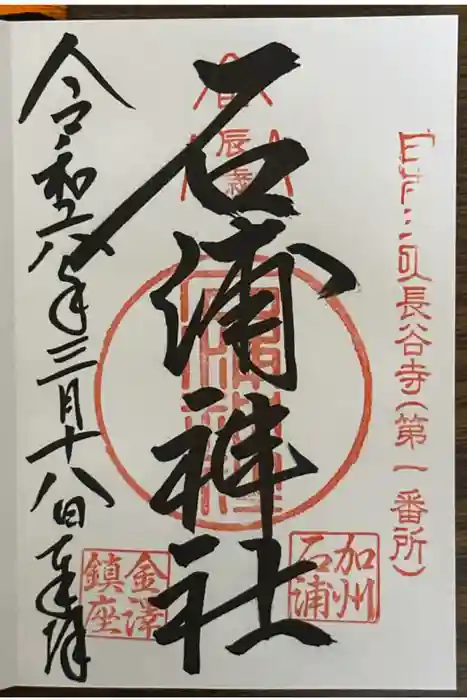 長谷寺(第一番所)
辰歳
石浦神社
加州
石浦
金澤
鎮座
令和六年三月十八日奉拝